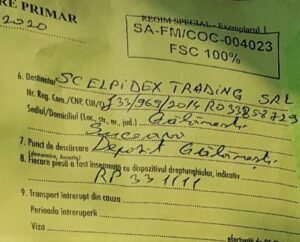 RE PRIMAR
2020
REGIM SPECIAL - Exemplarul 1
SA-FM/COC-004023
FSC 100%
6. Destinatar SCELPIDEX TRADING SRL
Nr. Reg. Com./CNP, CUI/ J33/969/2014 RO33858729
Sediul/Domiciliul (Loc., str., nr., jud.) Gălănești
Suceava
7. Punct de descărcare Depozit Gălănești
(denumire, locație)
8. Fiecare piesă a fost însemnată cu dispozitivul dreptunghiular, indicativ
RP 33 1111
9. Transport întrerupt din cauza
Perioada întreruperii
Viza